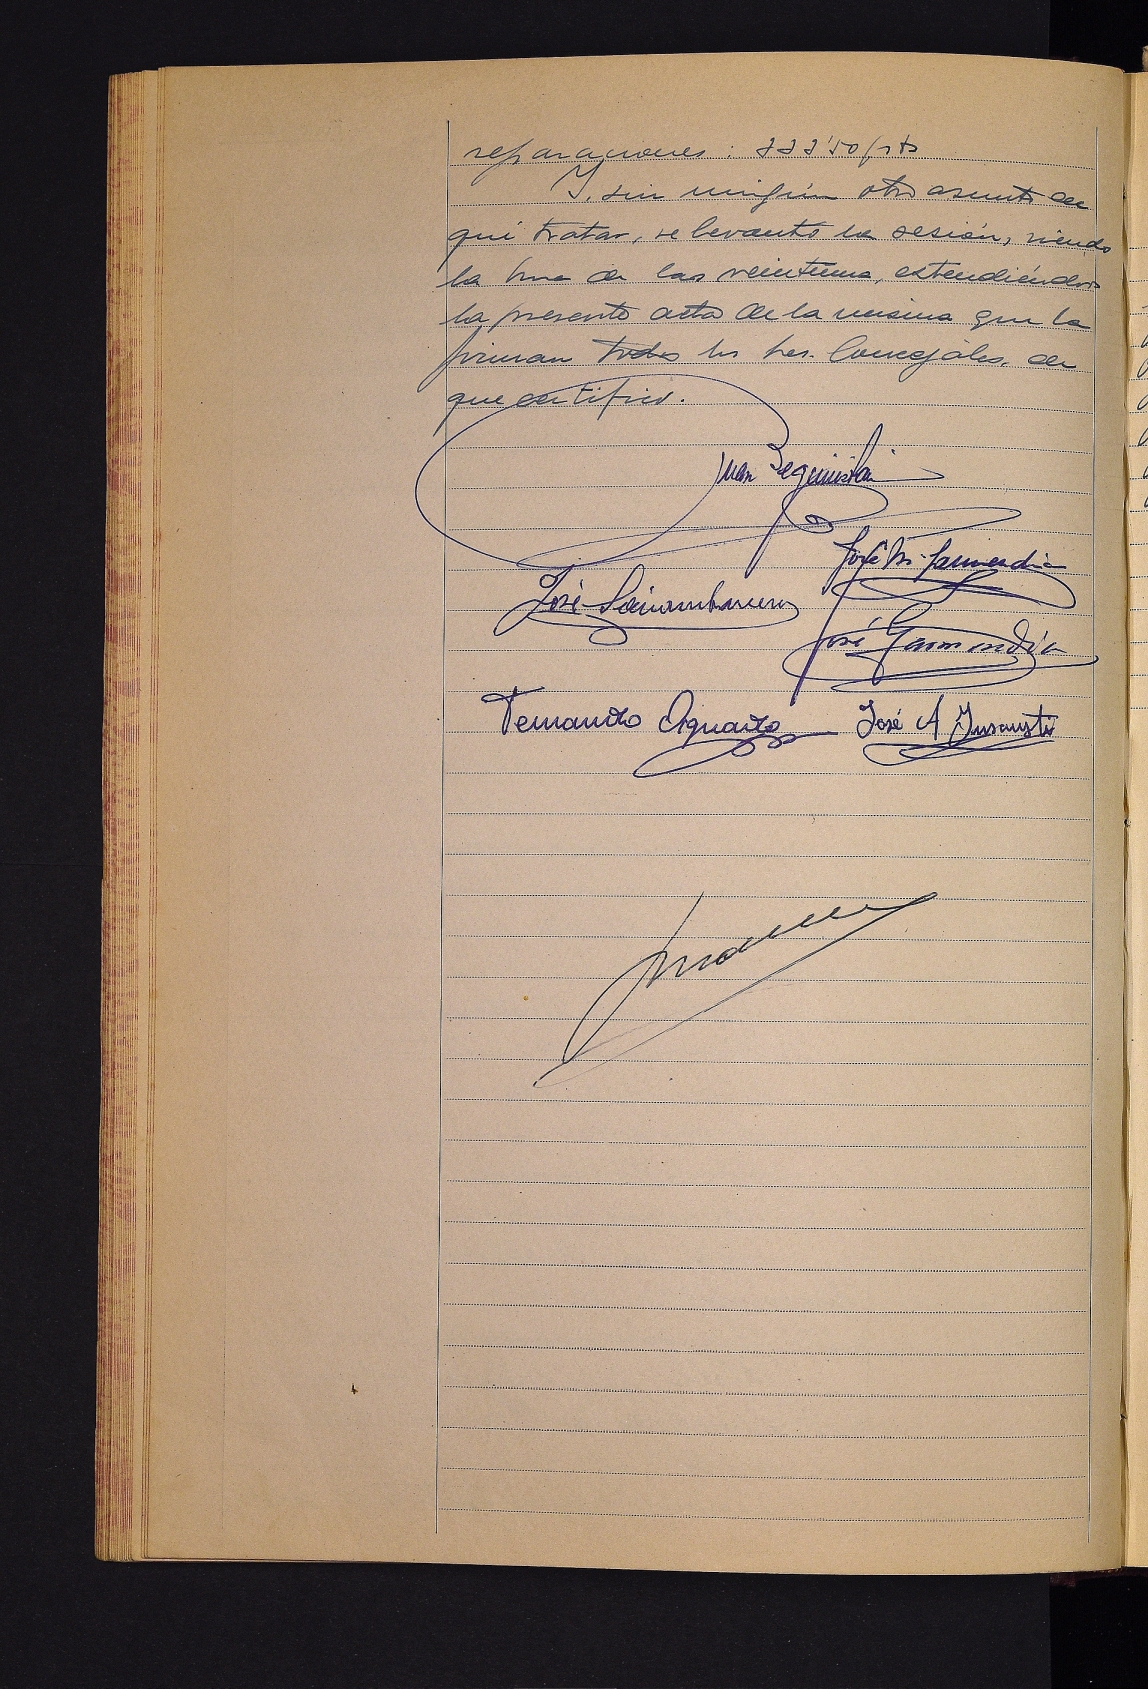 reparaciones: 333'50 pts
Y, sin ningún otro asunto de
qué tratar, se levantó la sesión, siendo
la hora de las veintiuna, extendiéndose
la presente acta de la misma que la
firman todos los Sres. Concejales, de
que certifico.
Juan Beguiristain
José M. Garmendia
José
José Garmendia
Fernando Aguado
José A. Insausti